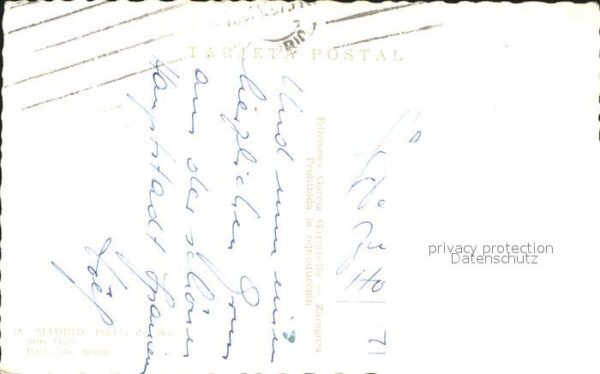 TARJETA POSTAL
Und nun einen
herzlichen Gruss
aus der schönen
Hauptstadt Spaniens
Ediciones Garcia Garrabella — Zaragoza
Prohibida la reproducción
MADRID. Puerta del Sol
Sun Gate
Porte du Soleil
privacy protection
Datenschutz